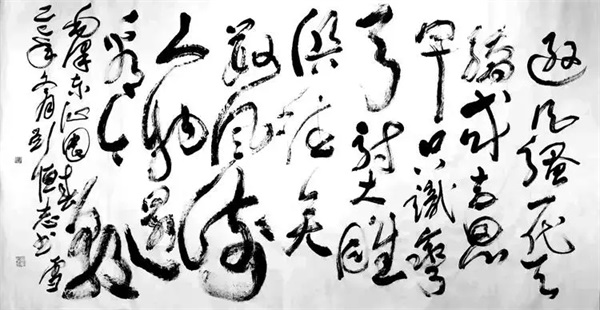 逊风骚一代天
骄成吉思
只识弯
弓射大雕
俱往矣
数风流
人物还
看今朝
毛泽东沁园春雪
年 恒志书